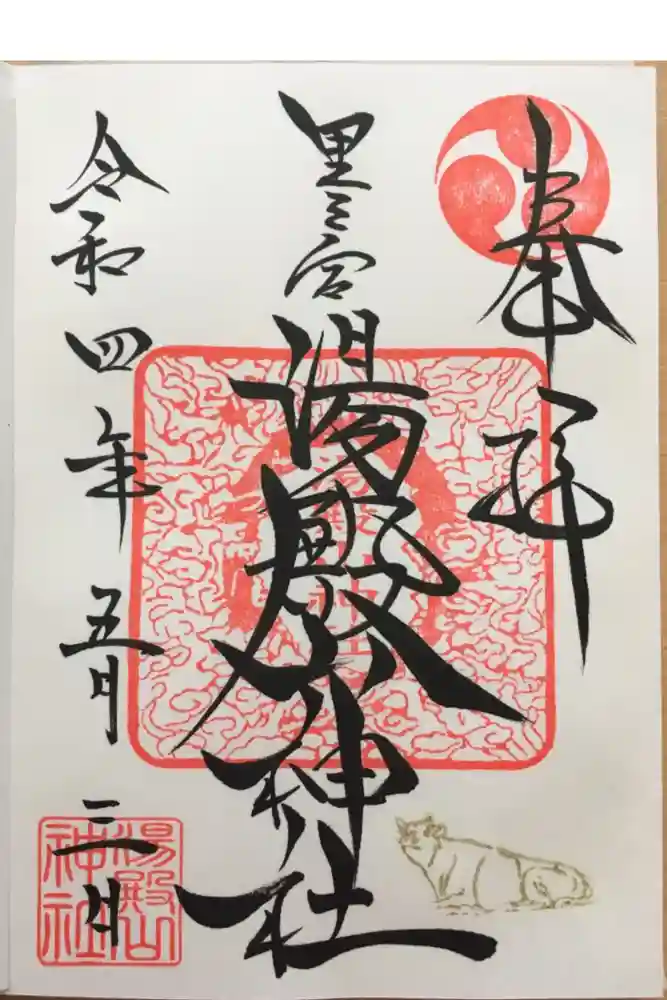 奉拝
里之宮
湯殿山神社
令和四年五月三日
湯殿山
神社